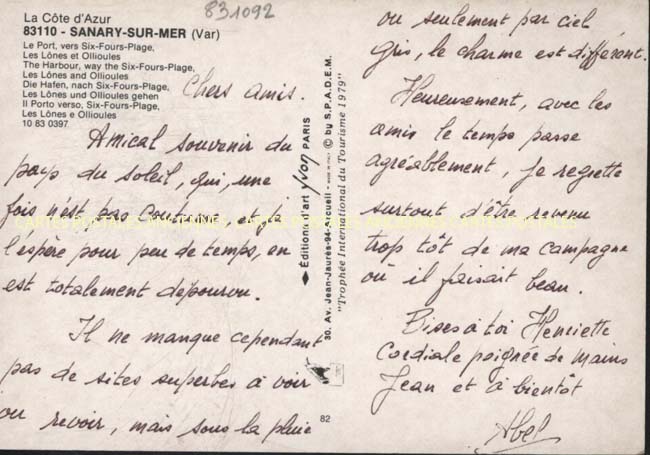 831092
La Côte d'Azur
83110 - SANARY-SUR-MER (Var)
Le Port, vers Six-Fours-Plage,
Les Lônes et Ollioules
The Harbour, way the Six-Fours-Plage,
Les Lônes and Ollioules
Die Hafen, nach Six-Fours-Plage,
Les Lônes und Ollioules gehen
Il Porto verso, Six-Fours-Plage,
Les Lônes e Ollioules
10 83 0397
Chers amis.
Amical souvenir du
pays du soleil, qui, une
fois n'est pas coutume, et je
l'espère pour peu de temps, en
est totalement dépourvu.
Il ne manque cependant
pas de sites superbes à voir
ou revoir, mais sous la pluie
Editions d'art yvon PARIS
30, Av. Jean-Jaurès-94-Arcueil - MADE IN FRANCE - © by S.P.A.D.E.M.
"Trophée International du Tourisme 1979"
82
ou seulement par ciel
gris, le charme est différent.
Heureusement, avec les
amis le temps passe
agréablement, je regrette
surtout d'être revenu
trop tôt de ma campagne
où il faisait beau.
Bises à toi Henriette
Cordiale poignée de mains
Jean et à bientôt
Abel